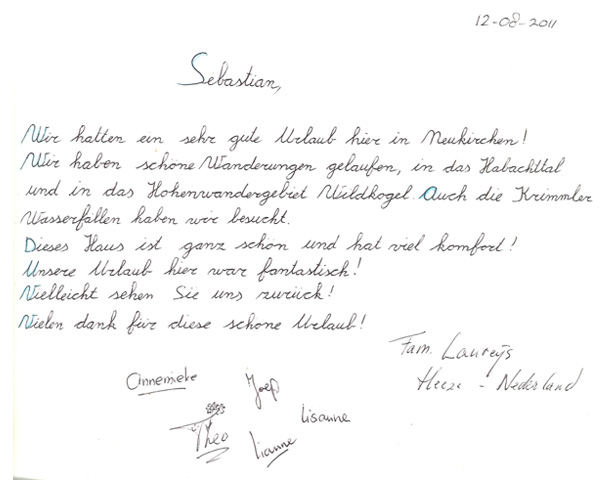 12-08-2011
Sebastian,
Wir hatten ein sehr gute Urlaub hier in Neukirchen!
Wir haben schöne Wanderungen gelaufen, in das Habachttal
und in das Hohenwandergebiet Wildkogel. Auch die Krimmler
Wasserfällen haben wir besucht.
Dieses Haus ist ganz schön und hat viel komfort!
Unsere Urlaub hier war fantastisch!
Vielleicht sehen Sie uns zurück!
Vielen dank für diese schöne Urlaub!
Fam. Laureijs
Heeze - Nederland
Annemieke Joep
Lisanne
Theo Lianne